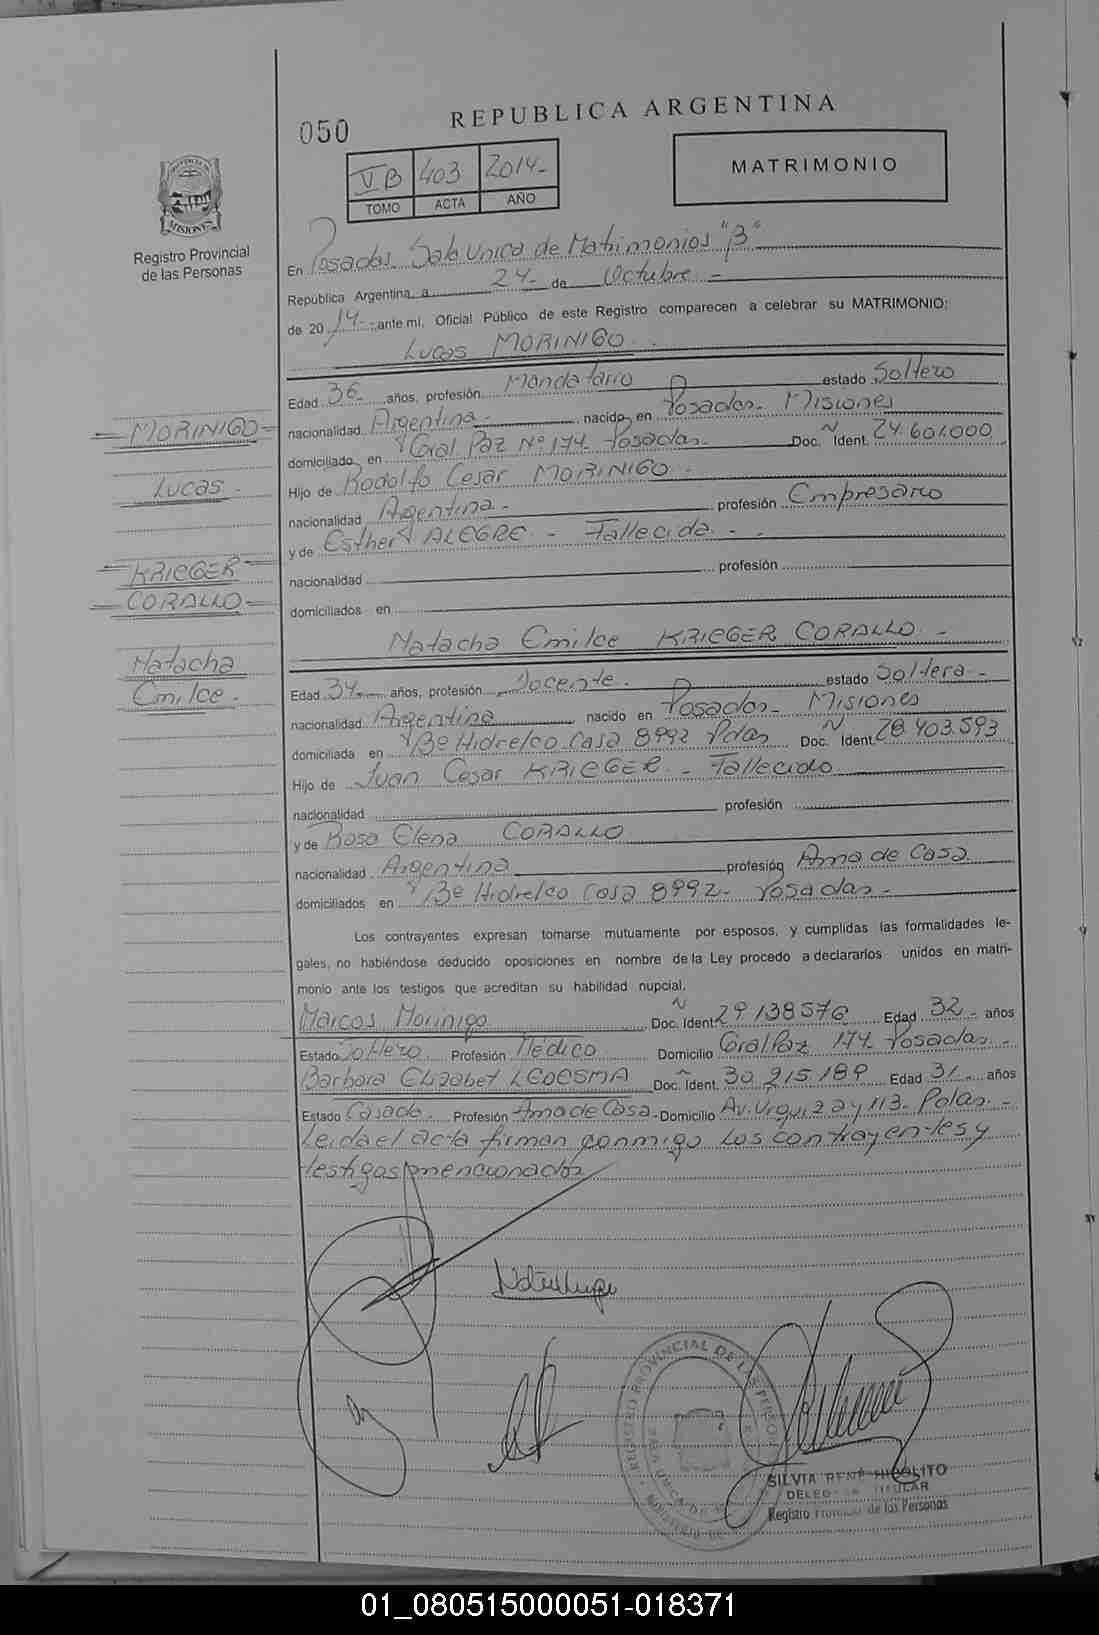 REPUBLICA ARGENTINA
050
MATRIMONIO
VB 403 2014-
TOMO ACTA AÑO
MISIONES
Registro Provincial
de las Personas
En Posadas Sala Unica de Matrimonios "B"
República Argentina, a 24- de Octubre -
de 2014- ante mi, Oficial Público de este Registro comparecen a celebrar su MATRIMONIO:
Lucas MORINIGO.
Edad 36 años, profesión Mandatario estado Soltero
MORINIGO
nacionalidad Argentina- nacido en Posadas- Misiones
domiciliado en Gral Paz Nº 174- Posadas- Doc. Ident. 24.601.000
Lucas.
Hijo de Rodolfo Cesar MORINIGO.
nacionalidad Argentina- profesión Empresario
y de Esther ALEGRE- Fallecida.-
KRIEGER
CORALLO
nacionalidad profesión
domiciliados en
Natacha Emilce KRIEGER CORALLO.-
Natacha
Emilce.
Edad 34 años, profesión Docente. estado Soltera-
nacionalidad Argentina nacido en Posadas- Misiones
domiciliada en Bº Hidrelco Casa 8992 Pdas Doc. Ident. 28.403.593
Hijo de Juan Cesar KRIEGER- Fallecido
nacionalidad profesión
y de Rosa Elena CORALLO
nacionalidad Argentina profesión Ama de Casa
domiciliados en Bº Hidrelco Casa 8992- Posadas-
Los contrayentes expresan tomarse mutuamente por esposos, y cumplidas las formalidades le-
gales, no habiéndose deducido oposiciones en nombre de la Ley procedo a declararlos unidos en matri-
monio ante los testigos que acreditan su habilidad nupcial.
Marcos Morinigo Doc. Ident. 29138576 Edad 32- años
Estado Soltero Profesión Médico Domicilio Gral Paz 174- Posadas-
Barbara Elizabet LEDESMA Doc. Ident. 30.215.189 Edad 31 años
Estado Casado Profesión Ama de Casa- Domicilio Av. Urquiza y 113- Pdas-
Leida el acta firman conmigo los contrayentes y
testigos mencionados
REGISTRO PROVINCIAL DE LAS PERSONAS
SILVIA RENE HIPOLITO
DELEGADA TITULAR
Registro Provincial de las Personas
01_080515000051-018371